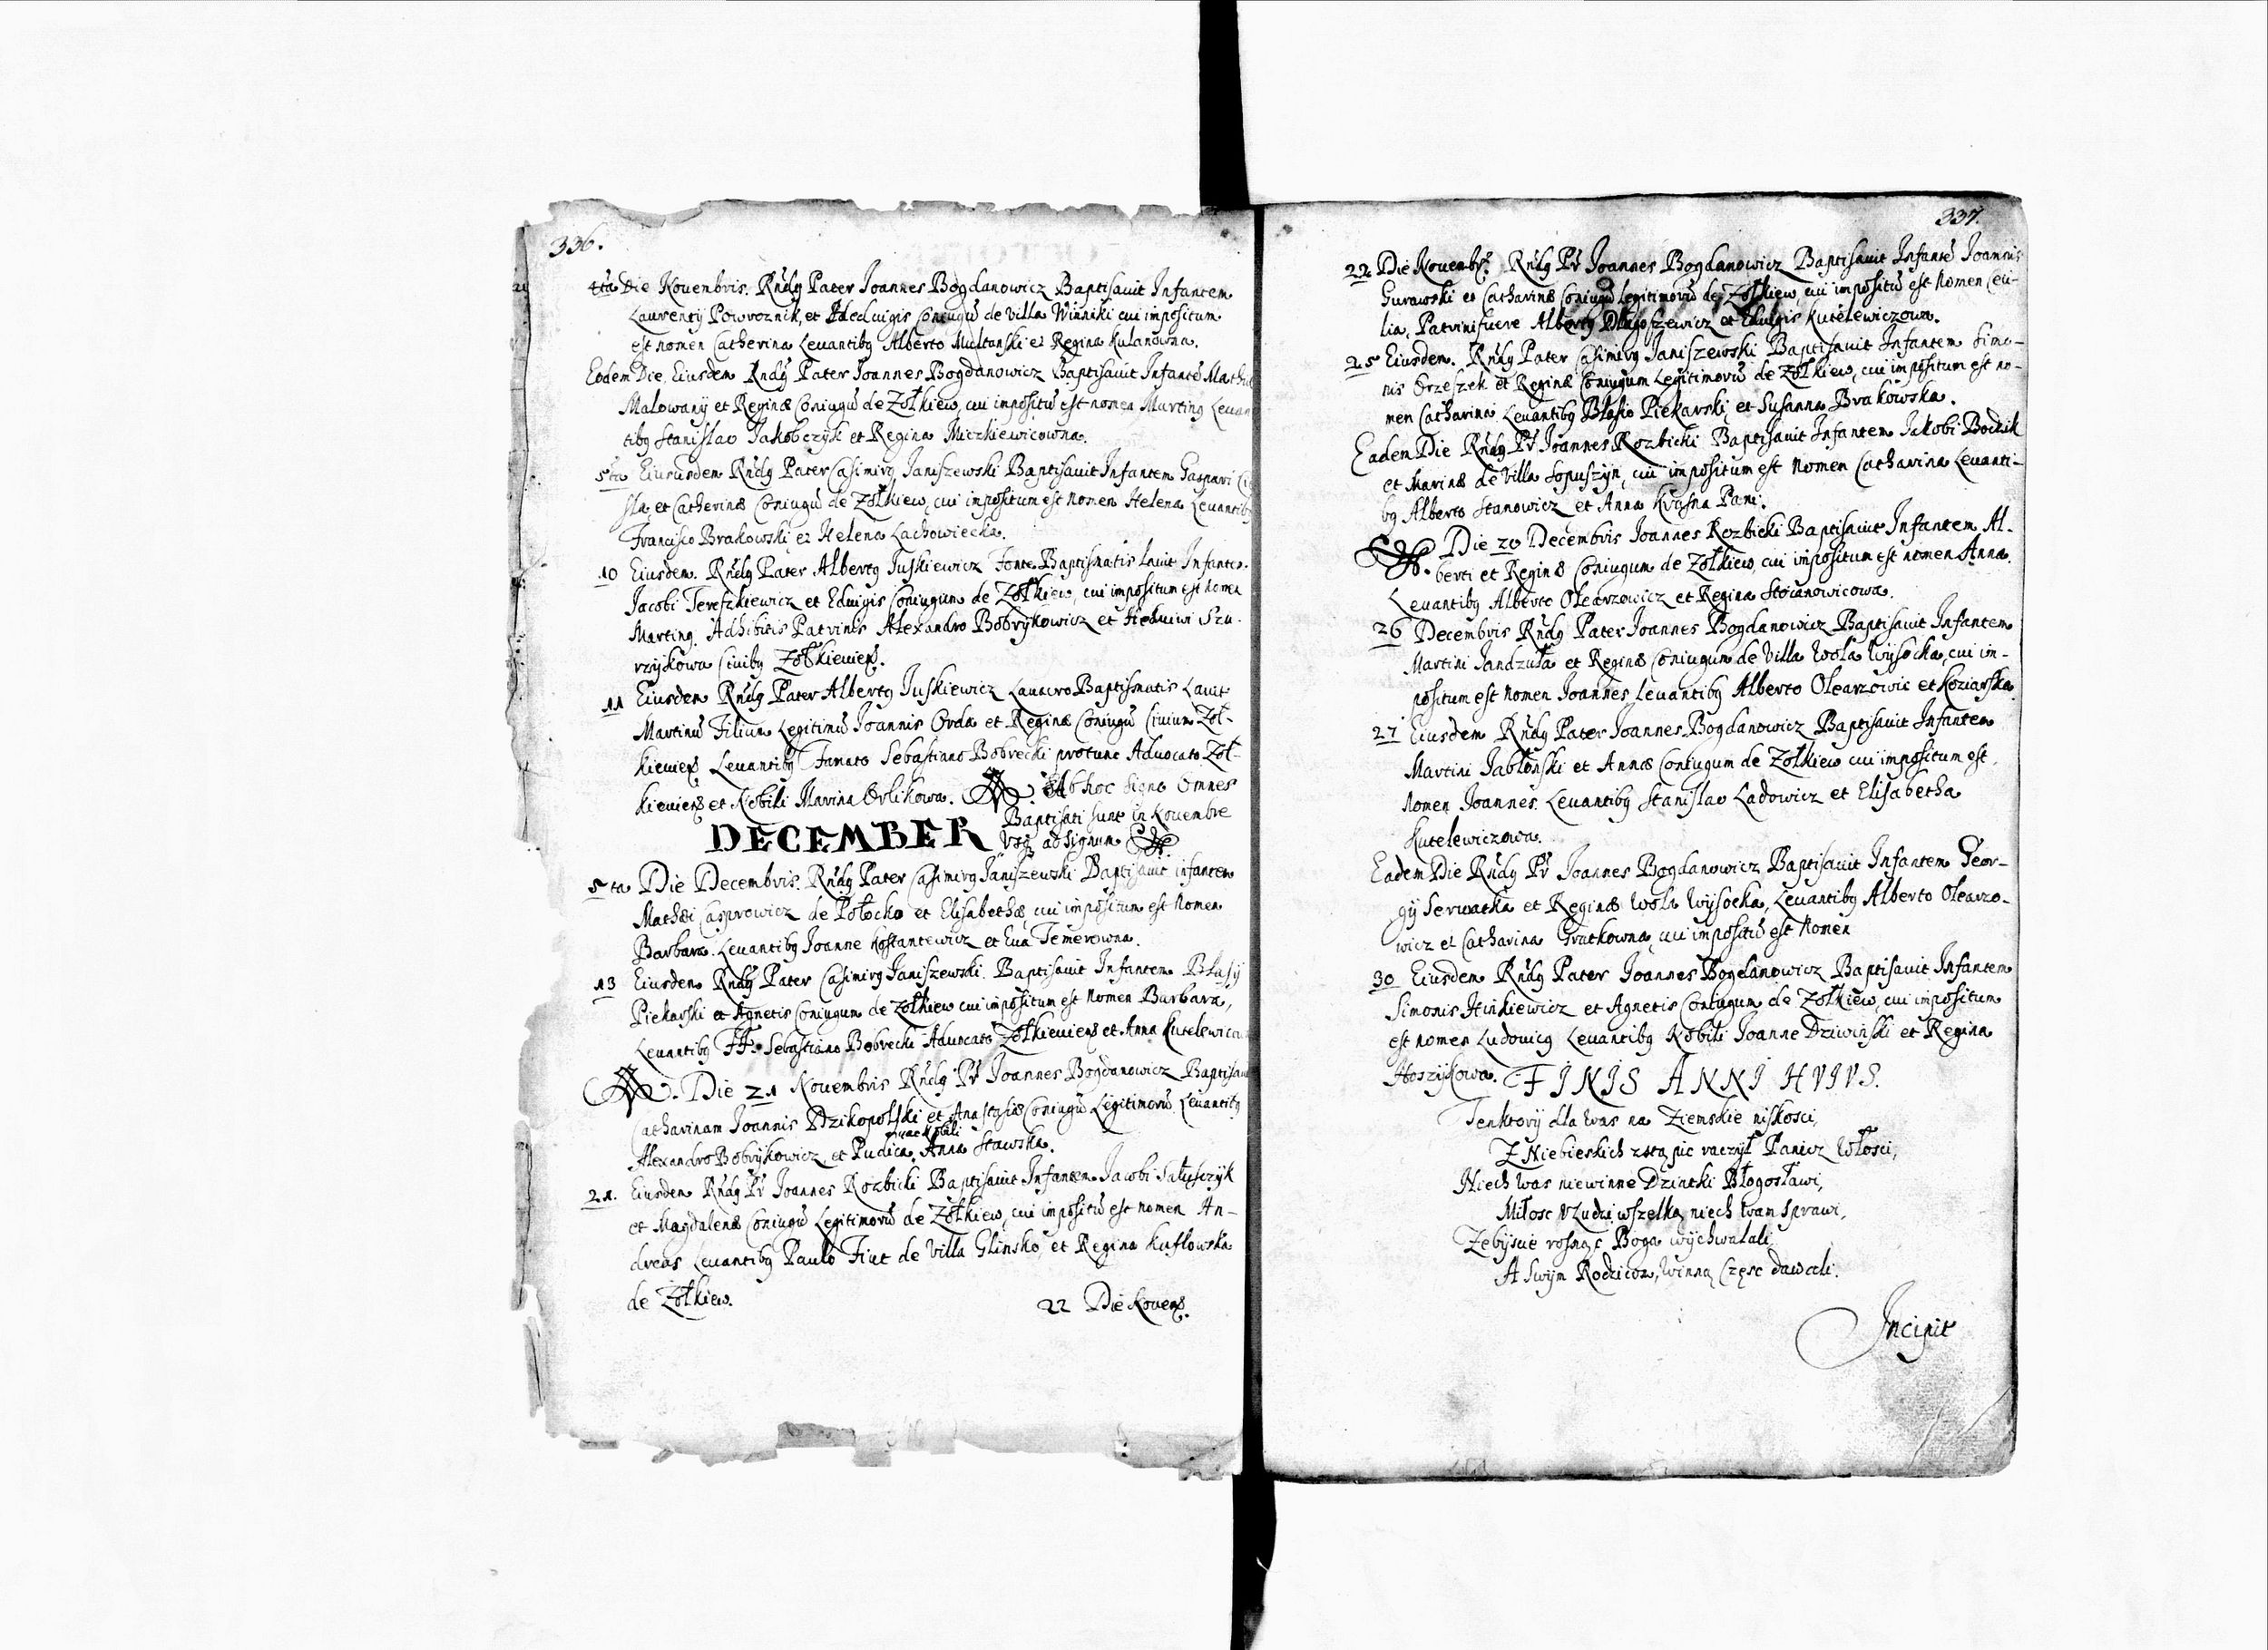 336.
4ta Die Nouenbris. Rndg Pater Joannes Bogdanowicz Baptisauit Infantem
Laurentÿ Powroznik, et Hedwigis Coniugū de Villa Winniki cui impositum
est nomen Catherina Leuantibg Alberto Multanski et Regina Kulanowna.
Eodem Die, Eiusdem Rndg Pater Joannes Bogdanowicz Baptisauit Infantē
Malowanÿ et Reginæ Coniugū de Zołkiew, cui impositū est nomen Marting Leuan
tibg Stanislao Jakobczÿk et Regina Miczkiewicowna.
5ta Eiusdem Rndg Pater Casimirg Janiszewski Baptisauit Infantem Gaspari
sla et Catherinæ Coniugū de Zołkiew, cui impositum est nomen Helena Leuantibg
Francisco Brakowski et Helena Lachowiecka.
10 Eiusdem. Rndg Pater Albertg Juskiewicz Fonte Baptismatis Lauit Infante.
Jacobi Tereszkiewicz et Eduigis Coniugum de Zołkiew, cui impositum est nomen
Marting. Adhibitis Patrinis Alexandro Bobrÿkowicz et Heduiwi Szu-
rzÿkowa Ciuibg Zołkieuień.
11 Eiusdem Rndg Pater Albertg Juskiewicz Lauacro Baptismatis Lauit
Martinū Filium Legitimū Joannis Orda et Reginæ Coniugū Ciuium Zoł-
kieuień Leuantibg Famato Sebastiano Bobrecki protunc Aduocato Zoł-
kieuień et Nobili Marina Orlikowa. Ab hoc Signo Omnes
Baptisati sunt in Nouembre
DECEMBER Vsq ad signum
5ta Die Decembris. Rndg Pater Casimirg Janiszewski Baptisauit infantem
Mathæi Casprowicz de Połocko et Elisabethæ, cui impositum est Nomen
Barbara. Leuantibg Joanne Kostantewicz et Eua Temerowna.
13 Eiusdem Rndg Pater Casimirg Janiszewski. Baptisauit Infantem Błasÿ
Piekarski et Agnetis Coniugum de Zołkiew cui impositum est Nomen Barbara,
Leuantibg FF. Sebastiano Bobrecki Aduocato Zołkieuień et Anna
Die 21 Nouembris Rndg Pr Joannes Bogdanowicz
Catharinam Joannis Dzikopolski et Anastasiæ Coniugū Legitimorū Leuantibg
ac Nobili
Alexandro Bobrÿkowicz, et Pudica Anna Stawska.
21. Eiusdem Rndg Pr Joannes Rozbicki Baptisauit Infantem Jacobi Sałusczÿk
et Magdalenæ Coniugū Legitimorū de Zołkiew, cui impositū est nomen An-
dreas Leuantibg Paulo Fiut de Villa Glinsko, et Regina Kuflowska
de Zołkiew.
22 Die Nouem.
337.
22 Die Nouembr. Rndg Pr Joannes Bogdanowicz Baptisauit Infantē Joannis
Gurawski et Catharinæ Coniugū Legitimorū de Zołkiew, cui impositū est Nomen Ceci-
lia, Patrini fuere Albertg Długoszewicz et Eduigis Kutelewiczowa.
25 Eiusdem. Rndg Pater Casimirg Janiszewski Baptisauit Infantem Simo-
nis Orzeszek et Reginæ Coniugum Legitimorū de Zołkiew, cui impositum est no-
men Catharina. Leuantibg Błasio Piekarski, et Susanna Brakowska.
Eadem Die Rndg Pr Joannes Rozbicki Baptisauit Infantem Jakobi Bodzik
et Marinæ de Villa Sopuszÿn, cui impositum est Nomen Catharina Leuanti-
bg Alberto Stanowicz et Anna Kvasna Pani.
Die 20 Decembris Joannes Rozbicki Baptisauit Infantem Al-
berti et Reginæ Coniugum de Zołkiew, cui impositum est nomen Anna.
Leuantibg Alberto Olearzowicz et Regina Stoianowicowa.
26 Decembris Rndg Pater Joannes Bogdanowicz Baptisauit Infantem
Martini Jandzuła et Reginæ Coniugum de Villa Wola Wÿsocka, cui im-
positum est nomen Joannes Leuantibg Alberto Olearzowic et Koziarska.
27 Eiusdem Rndg Pater Joannes Bogdanowicz Baptisauit Infantem
Martini Jabłonski et Annæ Coniugum de Zołkiew cui impositum est
Nomen Joannes. Leuantibg Stanislao Ladowicz et Elisabetha
Kutelewiczowa.
Eadem Die Rndg Pr Joannes Bogdanowicz Baptisauit Infantem Geor-
gÿ Serwatka et Reginæ Wola Wÿsocka, Leuantibg Alberto Olearzo-
wicz et Catharina Grutkowna, cui impositū est Nomen
30 Eiusdem Rndg Pater Joannes Bogdanowicz Baptisauit Infantem
Simonis Hinkiewicz et Agnetis Coniugum de Zołkiew, cui impositum
est nomen Ludouicg Leuantibg Nobili Joanne Dziwiński et Regina
Hoszÿkowa. FINIS ANNI HVIVS.
Tenktorÿ dla Was na Ziemskie niskosci,
Z Niebieskich zstąpic raczÿł Panicz Włosci,
Niech Was niewinne Dziatki Błogosławi,
Miłosc v Ludzi wszelką niech Wam Sprawi,
Zebÿscie rosnąc Boga wÿchwalali,
A Swÿm Rodzicom, Winną Częsc dawali.
Incipit